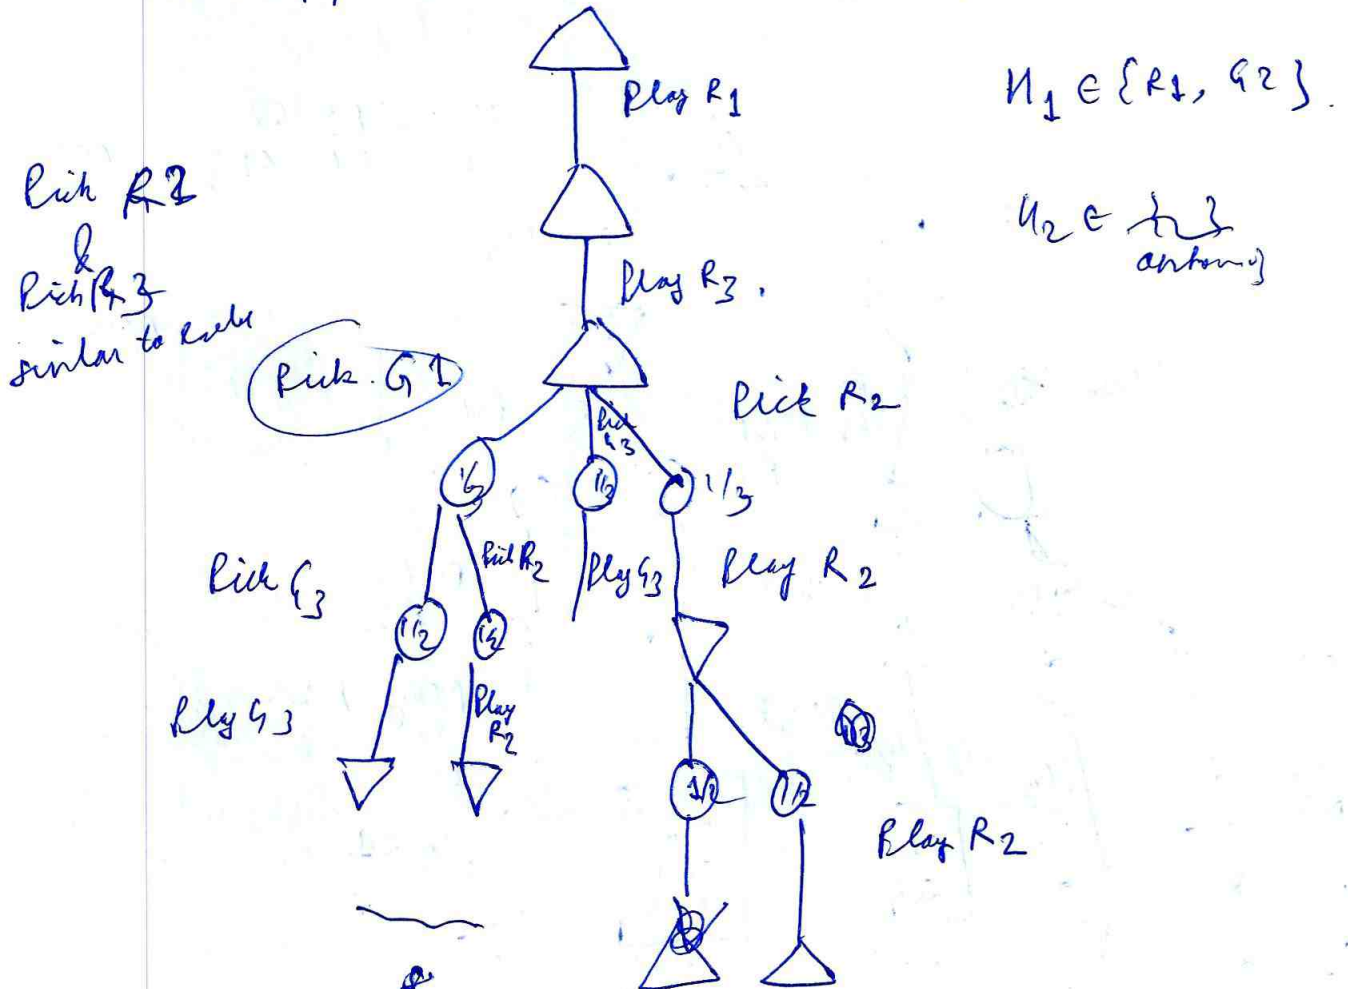 Play R1
H1 ∈ {R1, G2}.
Pick R2
&
H2 ∈ { }
Play R3.
similar to
Pick G1
Pick R2
Pick
G3
1/3
1/3
Pick G3
Pick R2
Play G3
Play R2
1/2
1/2
Play G3
Play
R2
1/2
1/2
Play R2